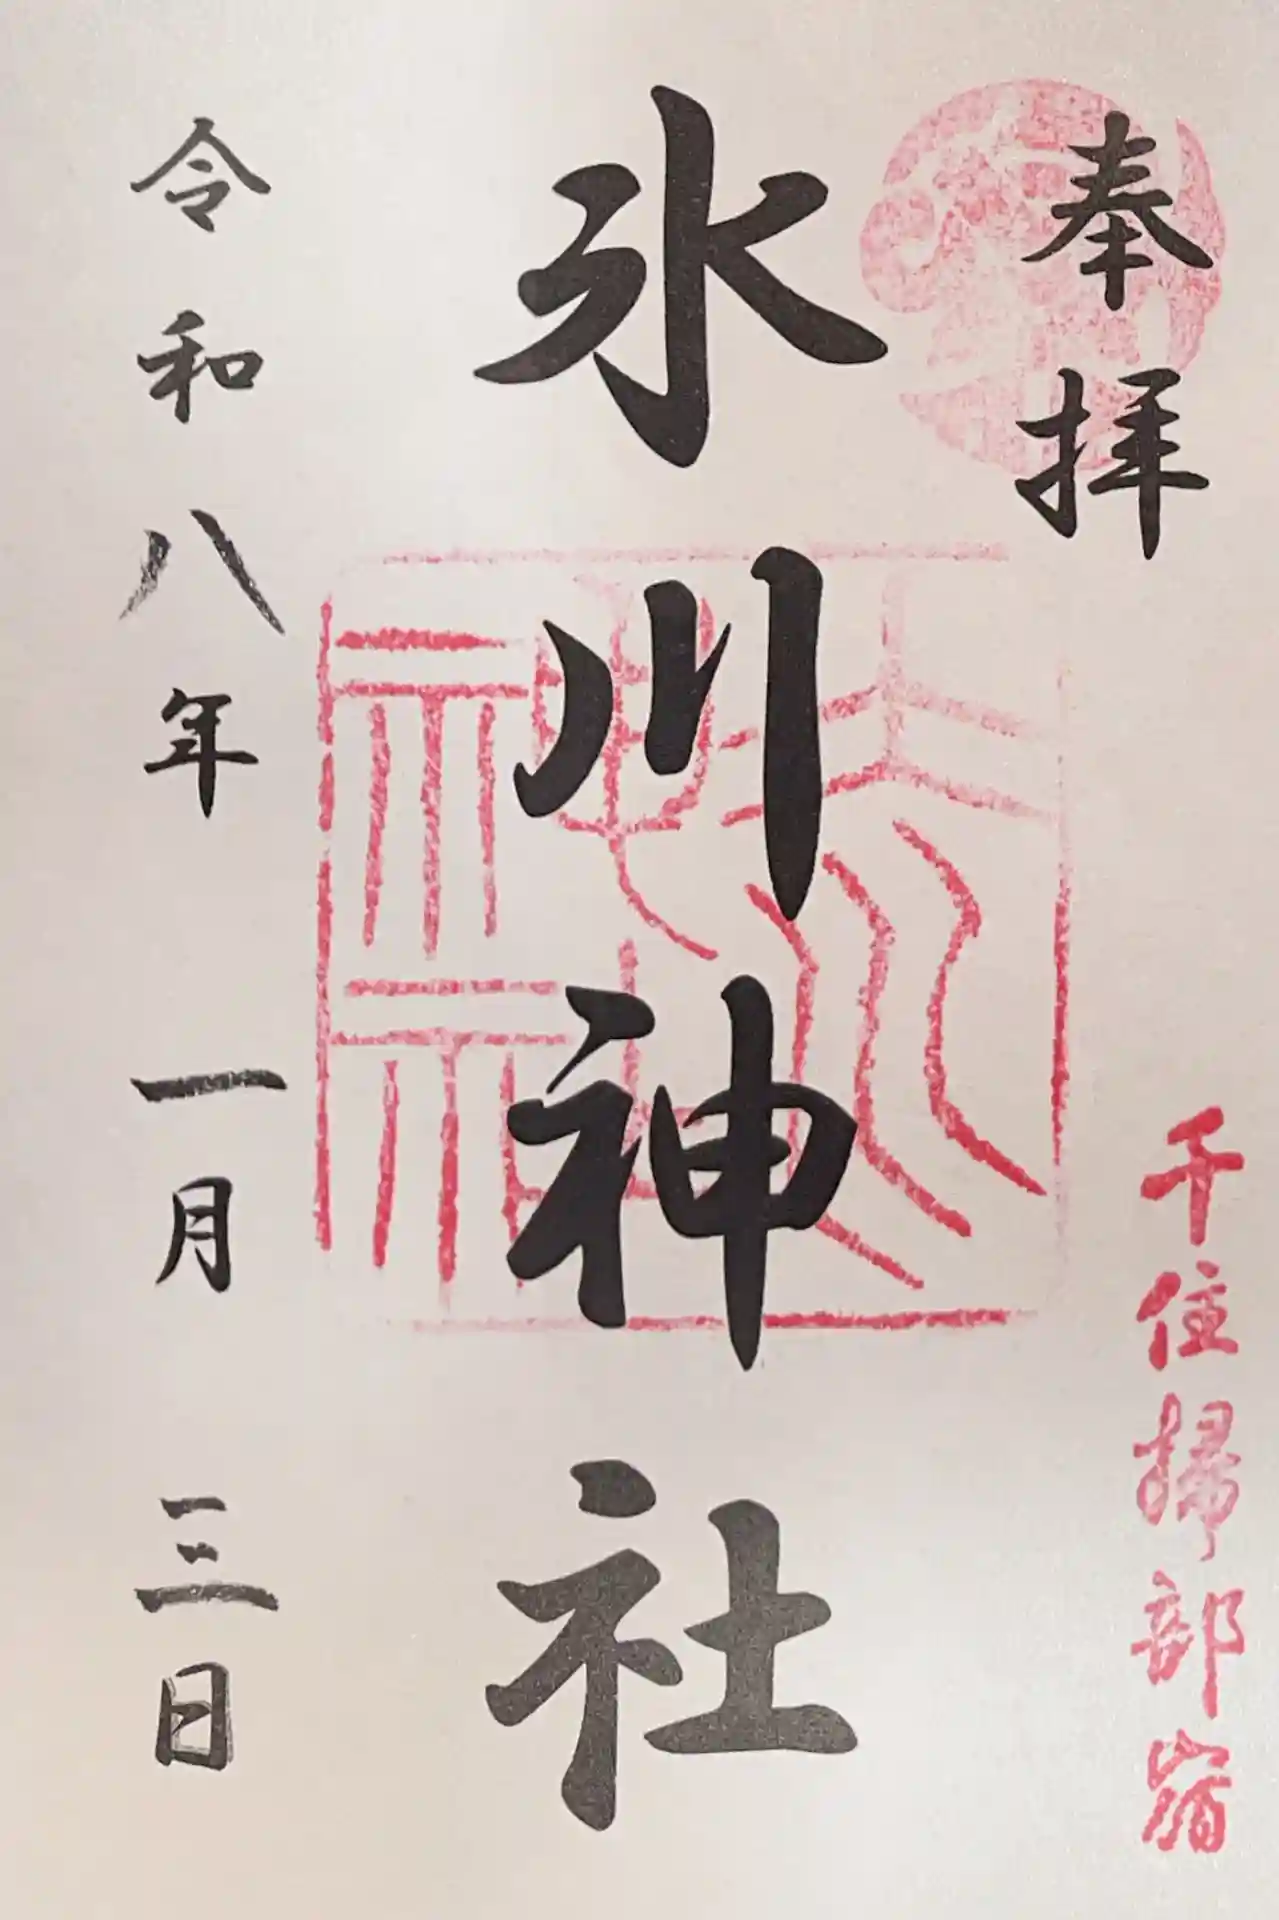 奉拝
千住掃部宿
氷川神社
令和八年一月三日